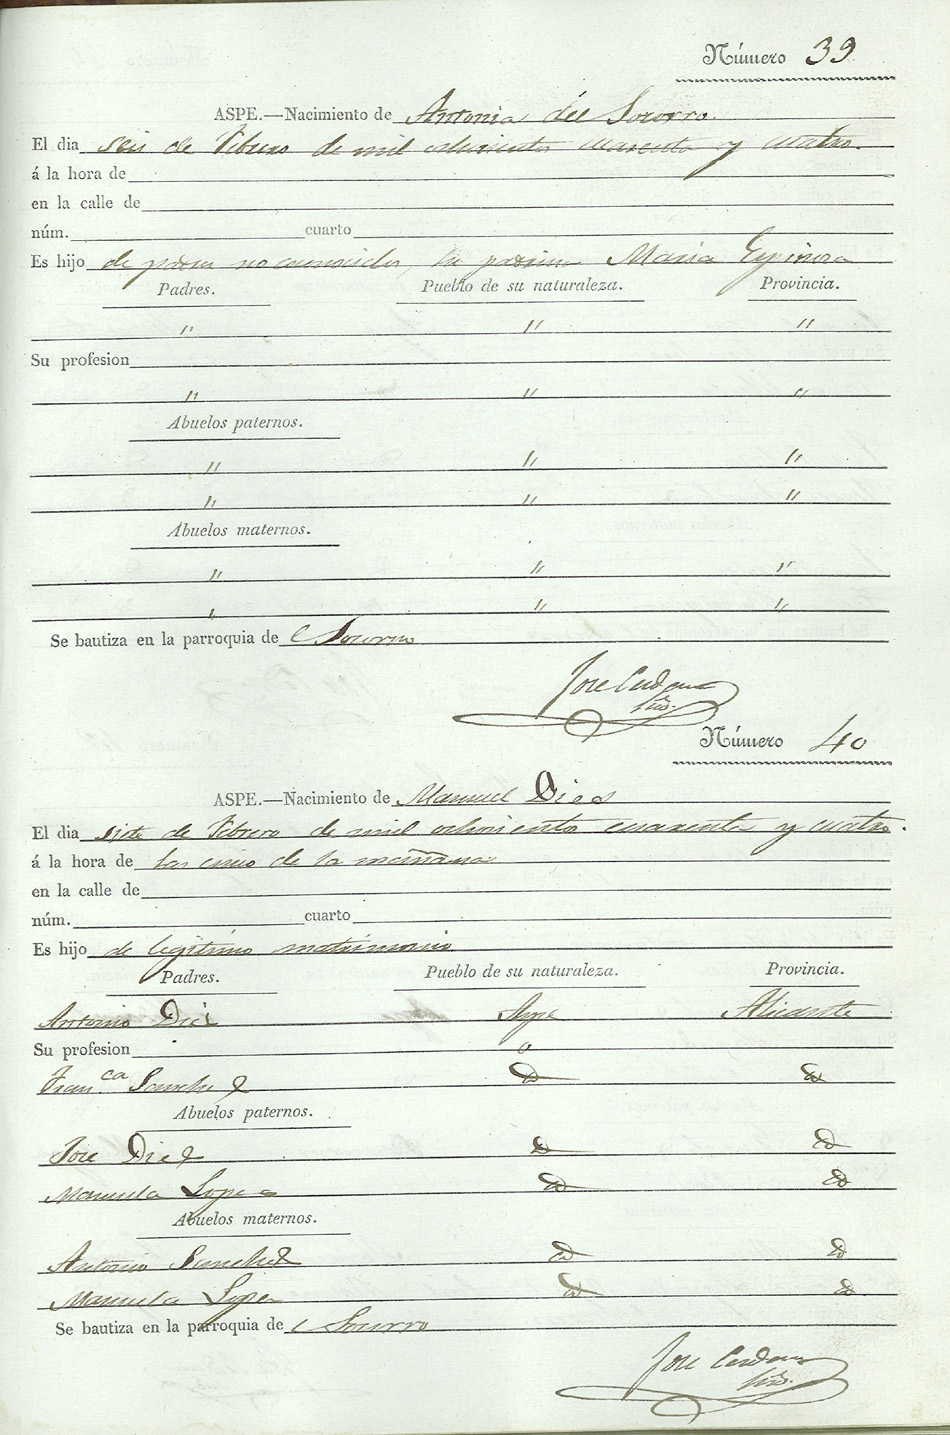 Número 39
ASPE.—Nacimiento de Antonia del Socorro.
El dia seis de Febrero de mil ochocientos cuarenta y cuatro.
á la hora de
en la calle de
núm. cuarto
Es hijo de padres no conocidos, la Maria Espinosa
Padres. Pueblo de su naturaleza. Provincia.
" " "
Su profesion
" " "
Abuelos paternos.
" " "
" " "
Abuelos maternos.
" " "
" " "
Se bautiza en la parroquia de Socorro
Jose Cerdan
Número 40
ASPE.—Nacimiento de Manuel Dies
El dia siete de Febrero de mil ochocientos cuarenta y cuatro.
á la hora de las cinco de la mañana
en la calle de
núm. cuarto
Es hijo de legitimo matrimonio
Padres. Pueblo de su naturaleza. Provincia.
Antonio Diez Aspe Alicante
Su profesion
Fran.ca Sanchez
Abuelos paternos.
Jose Diez
Manuela Lopes
Abuelos maternos.
Antonio Sanchez
Manuela Lopez
Se bautiza en la parroquia de Socorro
Jose Cerdan